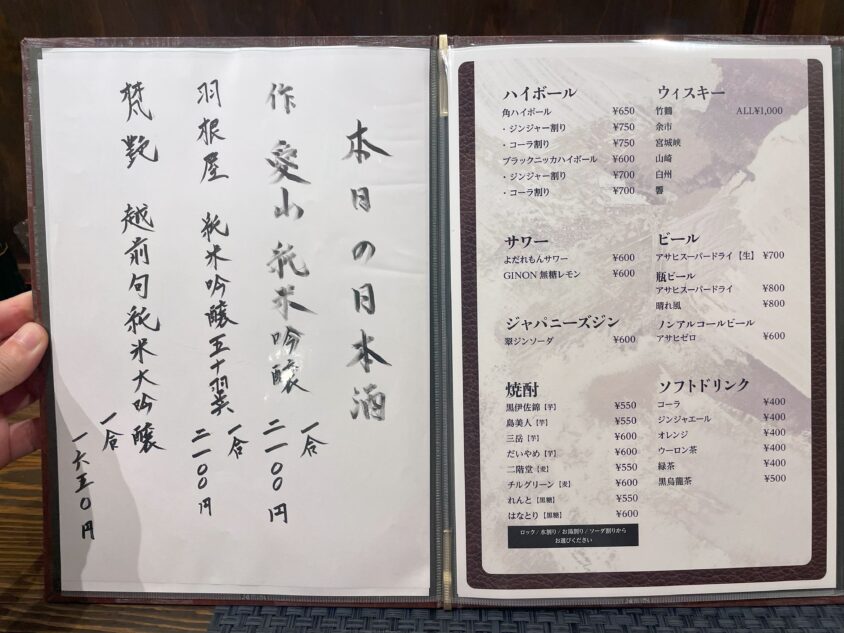 本日の日本酒
作 愛山 純米吟醸
一合
二一〇〇円
羽根屋 純米吟醸五十翼
一合
二一〇〇円
梵 艶 越前旬純米大吟醸
一合
一六五〇円
ハイボール
角ハイボール ¥650
・ジンジャー割り ¥750
・コーラ割り ¥750
ブラックニッカハイボール ¥600
・ジンジャー割り ¥700
・コーラ割り ¥700
サワー
よだれもんサワー ¥600
GINON 無糖レモン ¥600
ジャパニーズジン
翠ジンソーダ ¥600
焼酎
黒伊佐錦【芋】 ¥550
島美人【芋】 ¥550
三岳【芋】 ¥600
だいやめ【芋】 ¥600
二階堂【麦】 ¥550
チルグリーン【麦】 ¥600
れんと【黒糖】 ¥550
はなとり【黒糖】 ¥600
ロック / 水割り / お湯割り / ソーダ割りから
お選びください
ウィスキー
竹鶴 ALL¥1,000
余市
宮城峡
山崎
白州
響
ビール
アサヒスーパードライ【生】 ¥700
瓶ビール
アサヒスーパードライ ¥800
晴れ風 ¥800
ノンアルコールビール
アサヒゼロ ¥600
ソフトドリンク
コーラ ¥400
ジンジャエール ¥400
オレンジ ¥400
ウーロン茶 ¥400
緑茶 ¥400
黒烏龍茶 ¥500